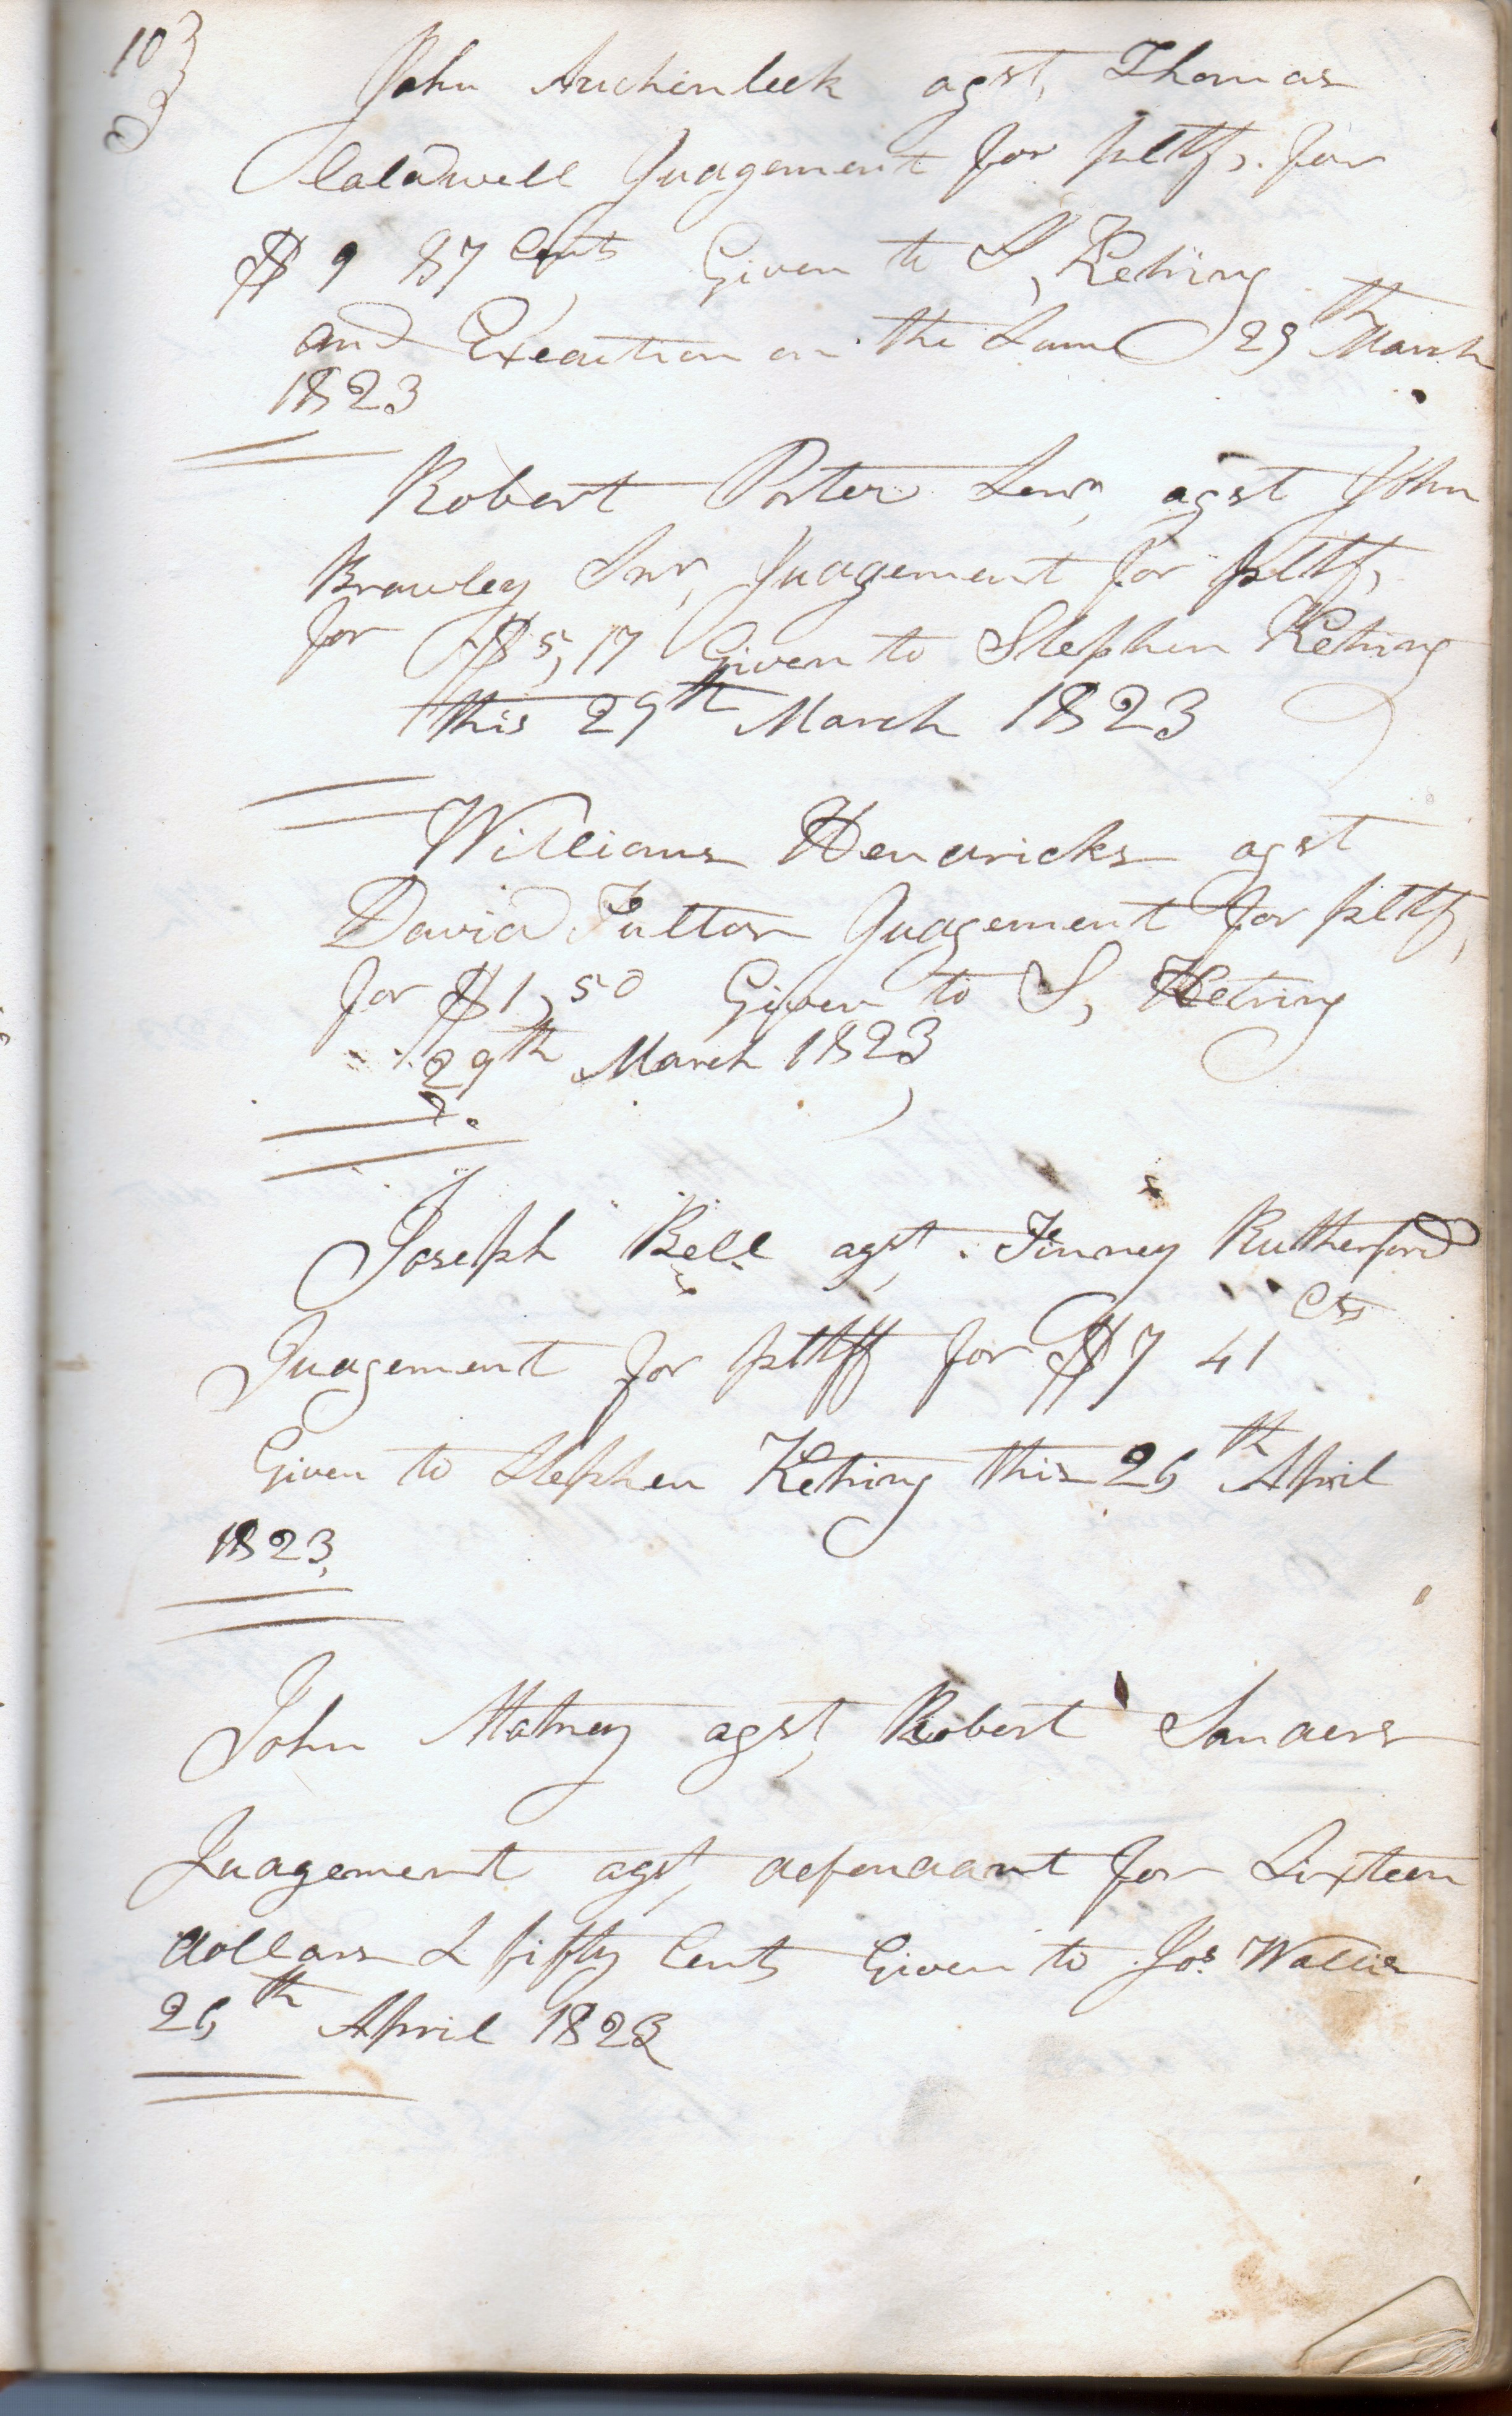 103
John Auchinleck agst, Thomas
Caladwell Judgement for pltf,. for
$ 9 87 Cents Given to S, Ketring
and Execution on the Same 29th March
1823
Robert Porter Senr, agst John
Brawley Snr, Judgement for pltf,
for $5,17 Given to Stephen Ketring
this 29th March 1823
William Hendricks agst
David Fulton Judgement for pltf,
for $1,50 Given to S, Ketring
29th March 1823
Joseph Bell agst, Finney Rutherford
Judgement for pltff for $7 41 Cts
Given to Stephen Ketring this 26th April
1823,
John Matney agst, Robert Sanders
Judgement agst, defendant for Sixteen
dollars & fifty Cents Given to Jos. Wallis
26th April 1823